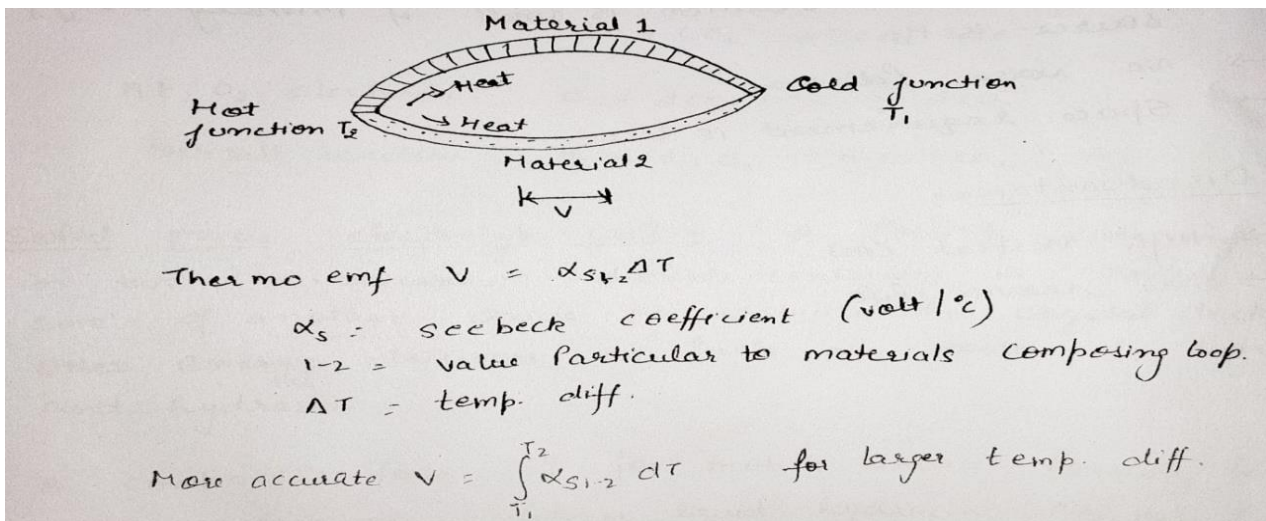 Material 1
Heat
Cold junction
T₁
Hot
junction T₂
Heat
Material 2
V
Thermo emf V = αs₁₋₂ ΔT
αs = seebeck coefficient (volt / °c)
1-2 = value Particular to materials composing loop.
ΔT = temp. diff.
More accurate V = ∫T₁T₂ αs₁₋₂ dT for larger temp. diff.